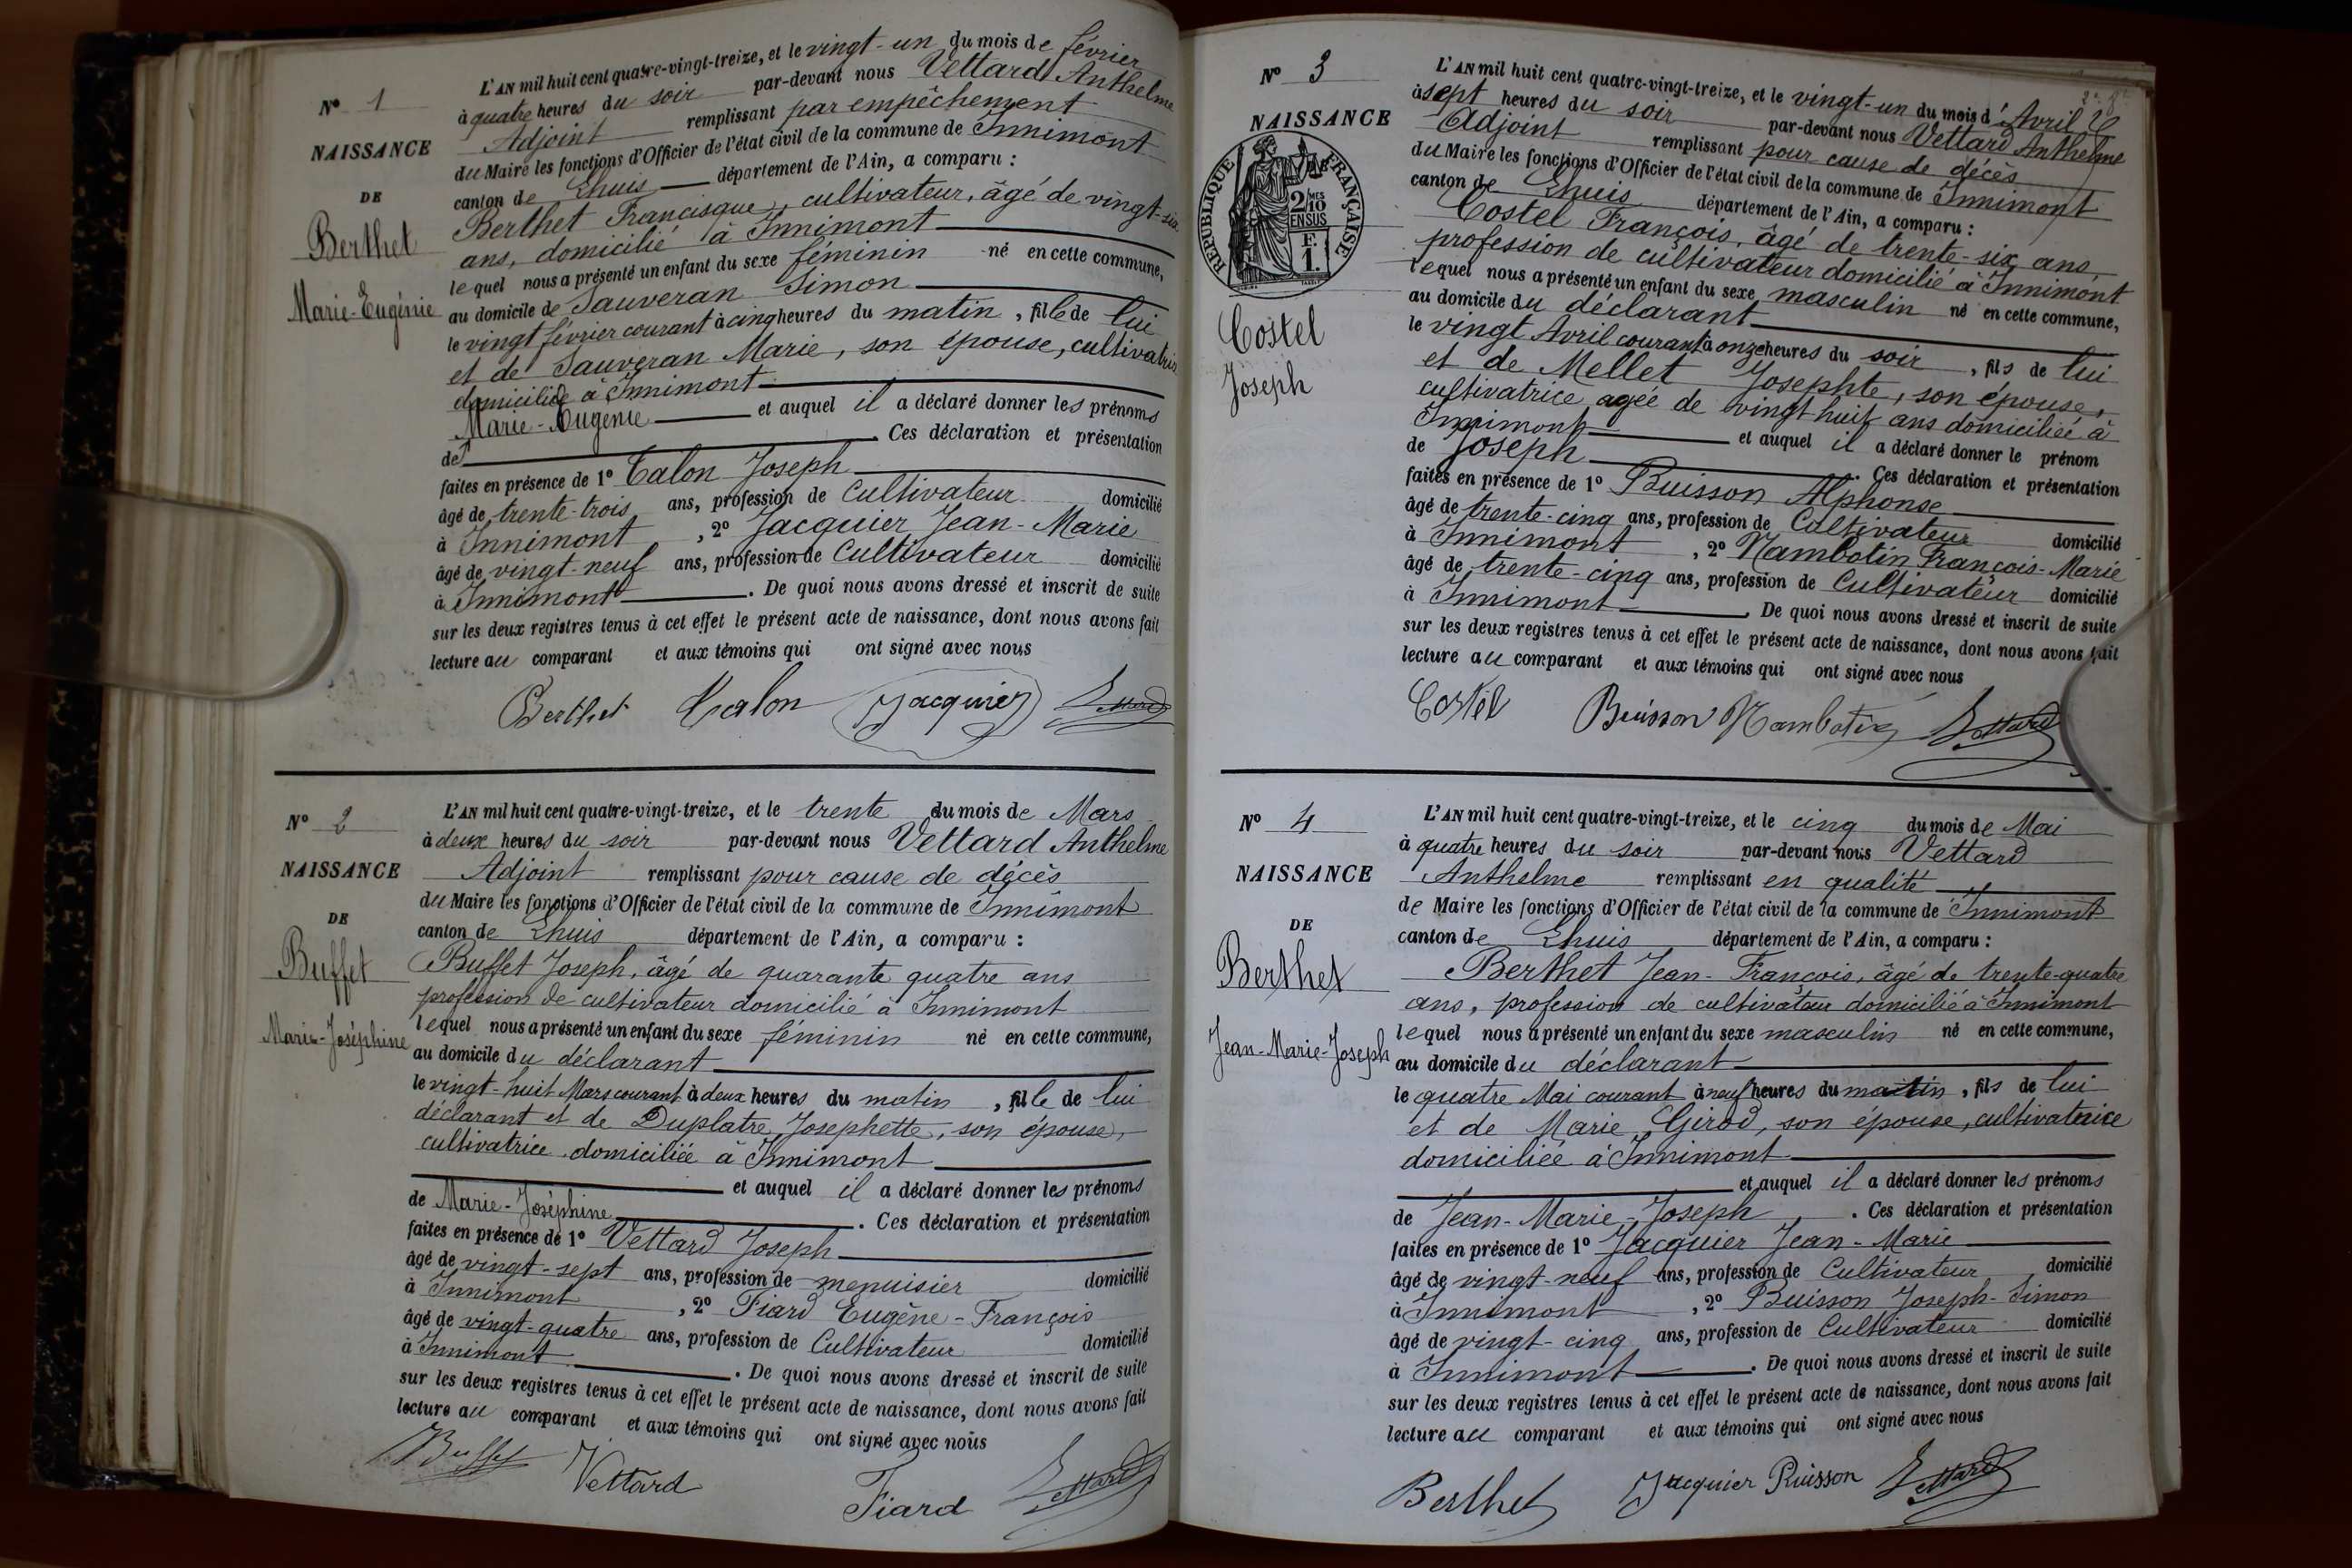 N° 1
NAISSANCE
DE
Berthet
Marie-Eugénie
L'AN mil huit cent quatre-vingt-treize, et le vingt-un du mois de février
à quatre heures du soir par-devant nous Vettard Anthelme
Adjoint remplissant par empêchement
du Maire les fonctions d'Officier de l'état civil de la commune de Innimont
canton de Lhuis département de l'Ain, a comparu :
Berthet Francisque, cultivateur, âgé de vingt-six
ans, domicilié à Innimont
lequel nous a présenté un enfant du sexe féminin né en cette commune,
au domicile de Sauveran Simon
le vingt février courant à cinq heures du matin, fille de lui
et de Sauveran Marie, son épouse, cultivatrice
domiciliée à Innimont
Marie-Eugénie et auquel il a déclaré donner les prénoms
de . Ces déclaration et présentation
faites en présence de 1° Calon Joseph
âgé de trente-trois ans, profession de Cultivateur domicilié
à Innimont , 2° Jacquier Jean-Marie
âgé de vingt-neuf ans, profession de Cultivateur domicilié
à Innimont . De quoi nous avons dressé et inscrit de suite
sur les deux registres tenus à cet effet le présent acte de naissance, dont nous avons fait
lecture au comparant et aux témoins qui ont signé avec nous
Berthet Calon Jacquier Vettard
N° 2
NAISSANCE
DE
Buffet
Marie-Joséphine
L'AN mil huit cent quatre-vingt-treize, et le trente du mois de Mars
à deux heures du soir par-devant nous Vettard Anthelme
Adjoint remplissant pour cause de décès
du Maire les fonctions d'Officier de l'état civil de la commune de Innimont
canton de Lhuis département de l'Ain, a comparu :
Buffet Joseph, âgé de quarante quatre ans
profession de cultivateur domicilié à Innimont
lequel nous a présenté un enfant du sexe féminin né en cette commune,
au domicile du déclarant
le vingt-huit Mars courant à deux heures du matin , fille de lui
déclarant et de Duplatre Josephette, son épouse,
cultivatrice domiciliée à Innimont
et auquel il a déclaré donner les prénoms
de Marie-Joséphine . Ces déclaration et présentation
faites en présence de 1° Vettard Joseph
âgé de vingt-sept ans, profession de menuisier domicilié
à Innimont , 2° Fiard Eugène-François
âgé de vingt-quatre ans, profession de Cultivateur domicilié
à Innimont . De quoi nous avons dressé et inscrit de suite
sur les deux registres tenus à cet effet le présent acte de naissance, dont nous avons fait
lecture au comparant et aux témoins qui ont signé avec nous
Buffet Vettard Fiard Vettard
N° 3
NAISSANCE
RÉPUBLIQUE FRANÇAISE
2/10 MES
EN SUS
F.
1.
Costel
Joseph
L'AN mil huit cent quatre-vingt-treize, et le vingt-un du mois d'Avril
à sept heures du soir par-devant nous Vettard Anthelme
Adjoint remplissant pour cause de décès
du Maire les fonctions d'Officier de l'état civil de la commune de Innimont
canton de Lhuis département de l'Ain, a comparu :
Costel François, âgé de trente-six ans,
profession de cultivateur domicilié à Innimont
lequel nous a présenté un enfant du sexe masculin né en cette commune,
au domicile du déclarant
le vingt Avril courant à onze heures du soir , fils de lui
et de Mellet Josephte, son épouse,
cultivatrice agée de vingt huit ans domiciliée à
Innimont et auquel il a déclaré donner le prénom
de Joseph . Ces déclaration et présentation
faites en présence de 1° Buisson Alphonse
âgé de trente-cinq ans, profession de Cultivateur domicilié
à Innimont , 2° Nambotin François-Marie
âgé de trente-cinq ans, profession de Cultivateur domicilié
à Innimont . De quoi nous avons dressé et inscrit de suite
sur les deux registres tenus à cet effet le présent acte de naissance, dont nous avons fait
lecture au comparant et aux témoins qui ont signé avec nous
Costel Buisson Nambotin Vettard
N° 4
NAISSANCE
DE
Berthet
Jean-Marie-Joseph
L'AN mil huit cent quatre-vingt-treize, et le cinq du mois de Mai
à quatre heures du soir par-devant nous Vettard
Anthelme remplissant en qualité
de Maire les fonctions d'Officier de l'état civil de la commune de Innimont
canton de Lhuis département de l'Ain, a comparu :
Berthet Jean-François, âgé de trente-quatre
ans, profession de cultivateur domicilié à Innimont
lequel nous a présenté un enfant du sexe masculin né en cette commune,
au domicile du déclarant
le quatre Mai courant à neuf heures du matin , fils de lui
et de Marie Girod, son épouse, cultivatrice
domiciliée à Innimont
et auquel il a déclaré donner les prénoms
de Jean-Marie-Joseph . Ces déclaration et présentation
faites en présence de 1° Jacquier Jean-Marie
âgé de vingt-neuf ans, profession de Cultivateur domicilié
à Innimont , 2° Buisson Joseph-Simon
âgé de vingt-cinq ans, profession de Cultivateur domicilié
à Innimont . De quoi nous avons dressé et inscrit de suite
sur les deux registres tenus à cet effet le présent acte de naissance, dont nous avons fait
lecture au comparant et aux témoins qui ont signé avec nous
Berthet Jacquier Buisson Vettard